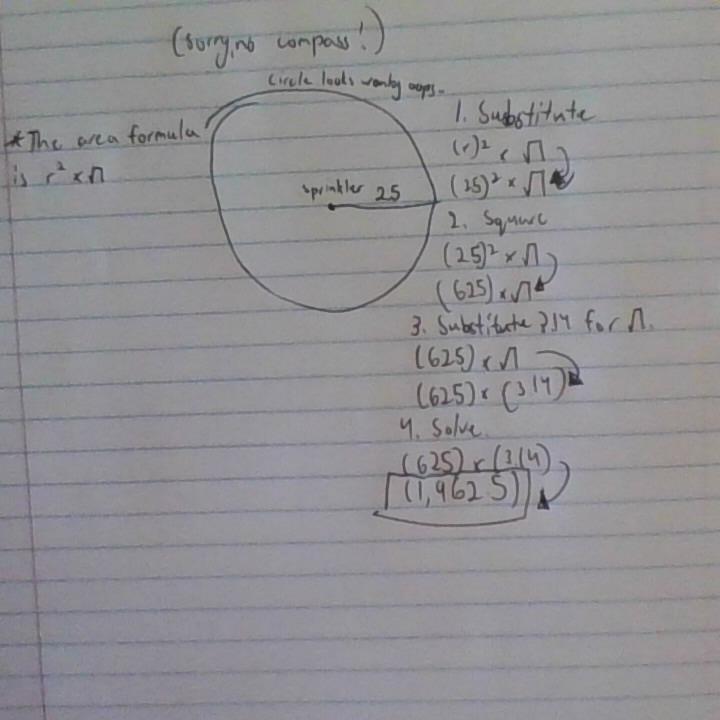 (sorry, no compass!)
Circle looks wonky oops.
*The area formula
is r² x π
sprinkler 25
1. Substitute
(r)² x π
(25)² x π
2. Square
(25)² x π
(625) x π
3. Substitute 3.14 for π.
(625) x π
(625) x (3.14)
4. Solve.
(625) x (3.14)
(1,962.5)